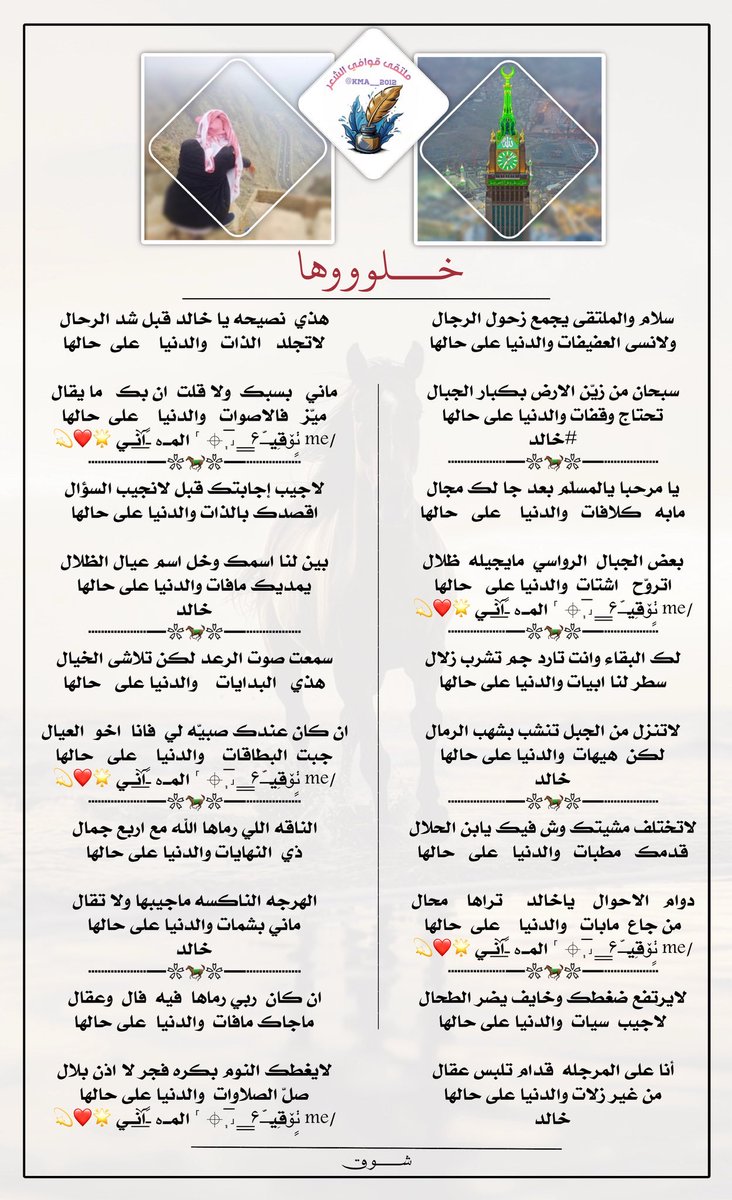 ملتقى قوافي الشعر
@KMA__2012
خـــلوووها
سلام والملتقى يجمع زحول الرجال
ولانسى العفيفات والدنيا على حالها
سبحان من زيّن الارض بكبار الجبال
تحتاج وقفات والدنيا على حالها
#خالد
يا مرحبا يالمسلم بعد جا لك مجال
مابه كلافات والدنيا على حالها
بعض الجبال الرواسي مايجيله ظلال
اتروّح اشتات والدنيا على حالها
/me المـه 🌟❤️💫
لك البقاء وانت تارد جم تشرب زلال
سطر لنا ابيات والدنيا على حالها
لاتنزل من الجبل تنشب بشهب الرمال
لكن هيهات والدنيا على حالها
خالد
لاتختلف مشيتك وش فيك يابن الحلال
قدمك مطبات والدنيا على حالها
دوام الاحوال ياخالد تراها محال
من جاع مابات والدنيا على حالها
/me المـه 🌟❤️💫
لايرتفع ضغطك وخايف يضر الطحال
لاجيب سيات والدنيا على حالها
أنا على المرجله قدام تلبس عقال
من غير زلات والدنيا على حالها
خالد
هذي نصيحه يا خالد قبل شد الرحال
لاتجلد الذات والدنيا على حالها
ماني بسبك ولا قلت ان بك ما يقال
ميّز فالاصوات والدنيا على حالها
/me المـه 🌟❤️💫
لاجيب إجابتك قبل لانجيب السؤال
اقصدك بالذات والدنيا على حالها
بين لنا اسمك وخل اسم عيال الظلال
يمديك مافات والدنيا على حالها
خالد
سمعت صوت الرعد لكن تلاشى الخيال
هذي البدايات والدنيا على حالها
ان كان عندك صبيّه لي فانا اخو العيال
جبت البطاقات والدنيا على حالها
/me المـه 🌟❤️💫
الناقه اللي رماها الله مع اربع جمال
ذي النهايات والدنيا على حالها
الهرجه الناكسه ماجيبها ولا تقال
ماني بشمات والدنيا على حالها
خالد
ان كان ربي رماها فيه فال وعقال
ماجاك مافات والدنيا على حالها
لايغطك النوم بكره فجر لا اذن بلال
صلّ الصلاوات والدنيا على حالها
/me المـه 🌟❤️💫
شـــوق